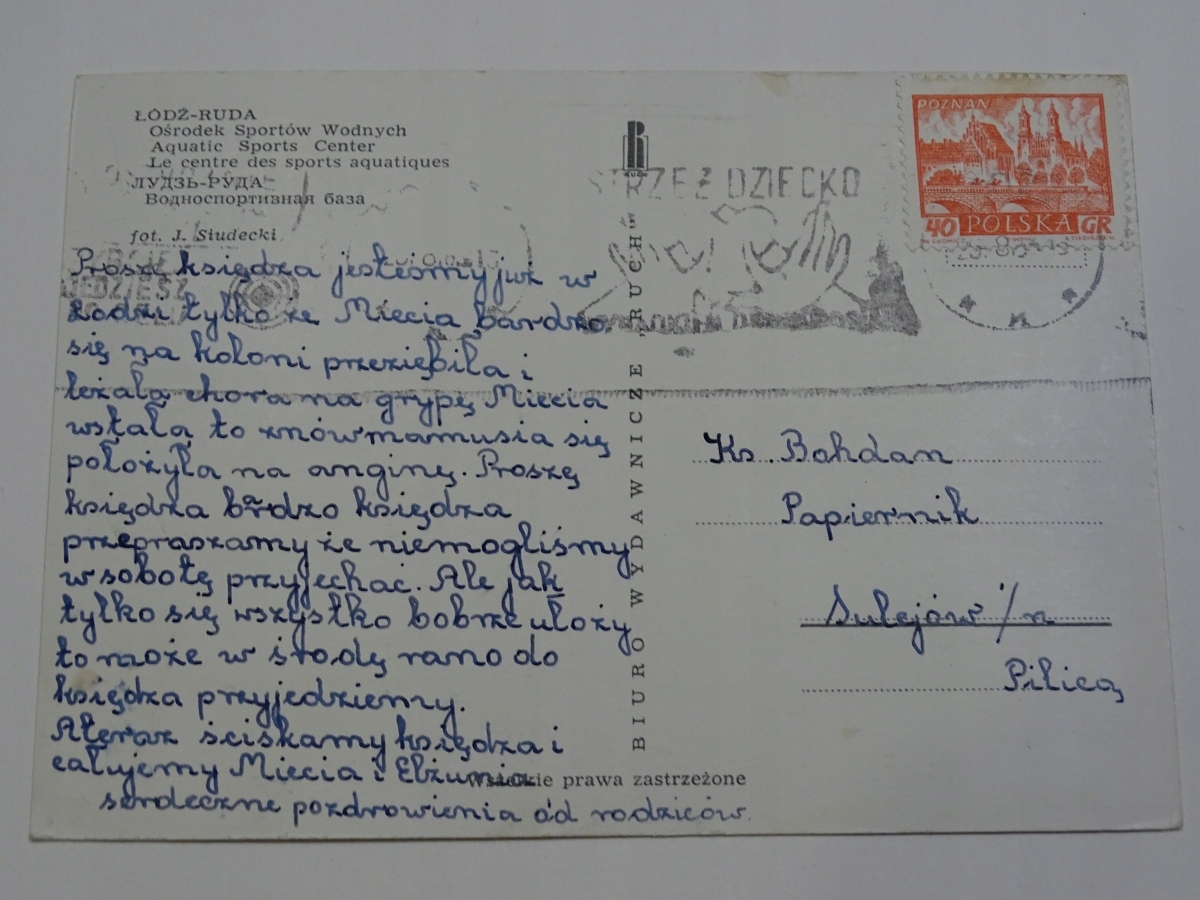 ŁÓDŹ-RUDA
Ośrodek Sportów Wodnych
Aquatic Sports Center
Le centre des sports aquatiques
ЛУДЗЬ-РУДА
Водноспортивная база
fot. J. Siudecki
Proszę księdza jesteśmy już w
Łodzi tylko że Miecia bardzo
się na koloni przeziębiła i
leżała chora na grypę Miecia
wstała to znów mamusia się
położyła na anginę. Proszę
księdza bardzo księdza
przepraszamy że niemogliśmy
w sobotę przyjechać. Ale jak
tylko się wszystko bobrze ułoży
to może w środę rano do
księdza przyjedziemy.
Ateraz ściskamy księdza i
całujemy Miecia i Elżunia
serdeczne pozdrowienia od rodziców.
BIURO WYDAWNICZE „RUCH"
Wszelkie prawa zastrzeżone
RUCH
STRZEŻ DZIECKO
POZNAŃ
40 POLSKA GR
Ks. Bohdan
Papiernik
Sulejów /n
Pilicą